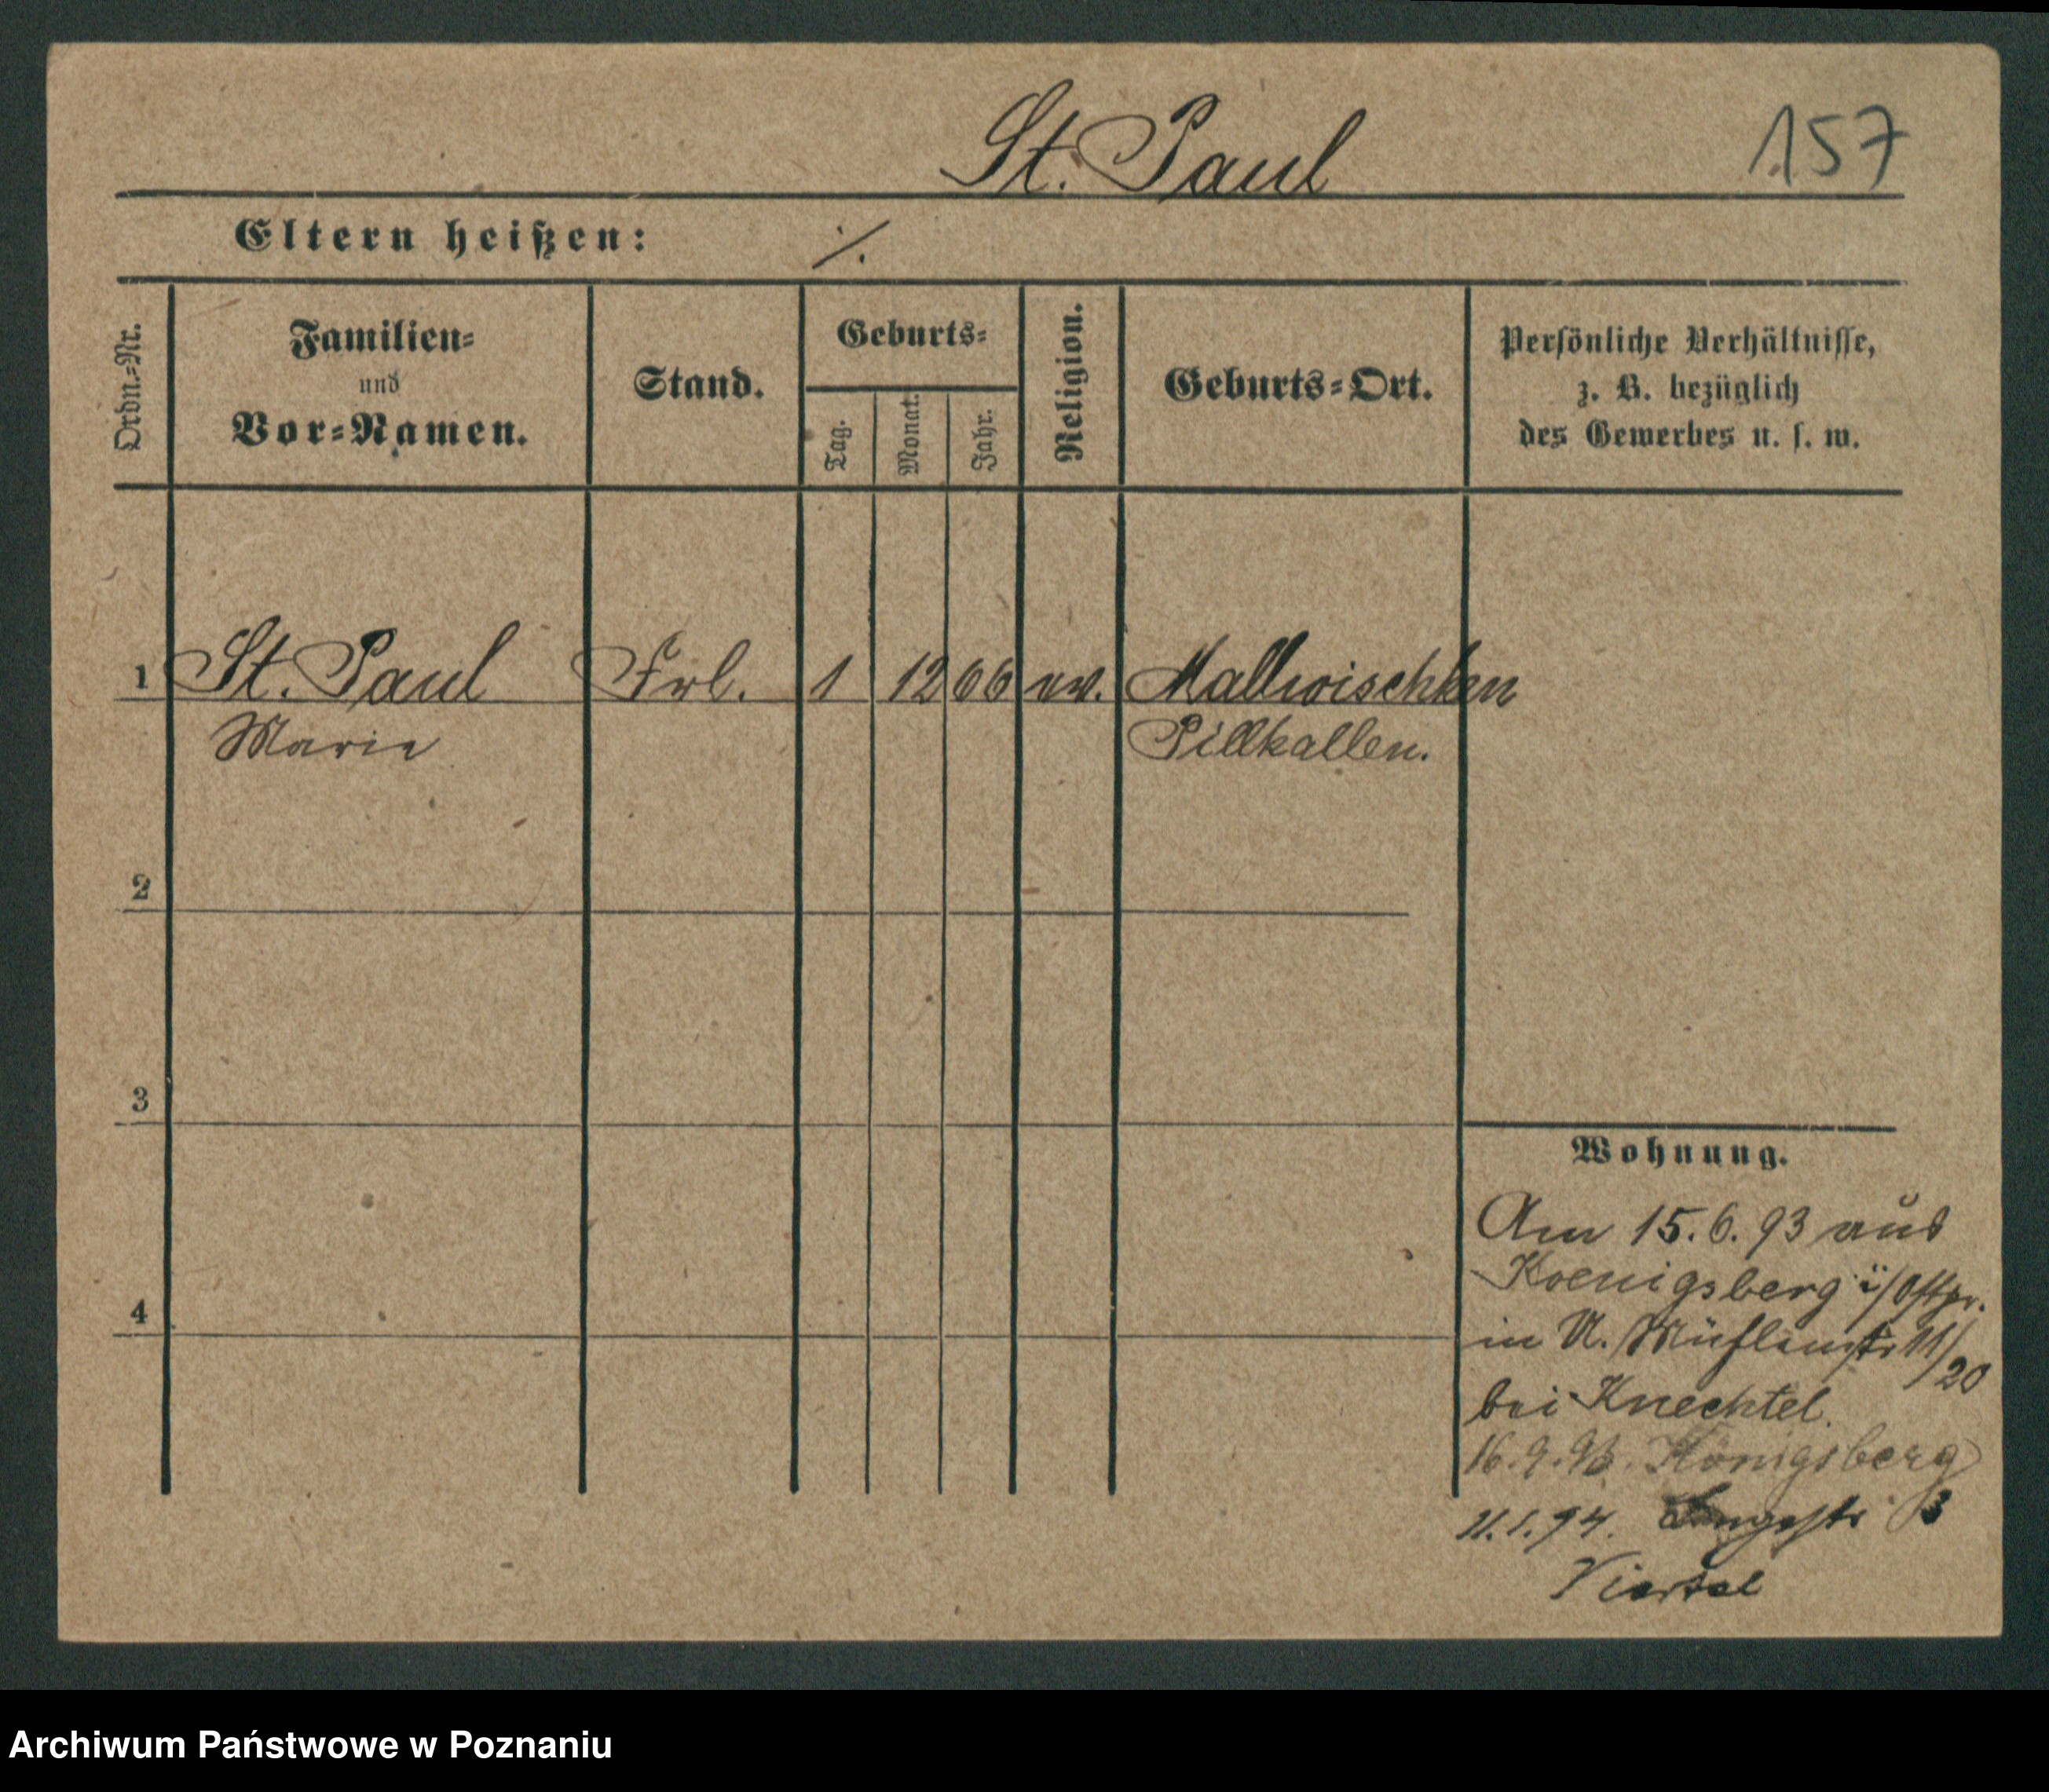 St. Paul
157
Eltern heißen: ./.
Ordn.-Nr.
Familien-
und
Vor-Namen.
Stand.
Geburts-
Tag.
Monat.
Jahr.
Religion.
Geburts-Ort.
Persönliche Verhältnisse,
z. B. bezüglich
des Gewerbes u. s. w.
1 St. Paul Frl. 1 12 66 ev. Mallwischken
Marie Pillkallen.
2
3
4
Wohnung.
Am 15.6.93 aus
Koenigsberg i/Ostpr.
in U. Mühlenstr 11/20
bei Knechtel.
16.9.93. Königsberg
11.1.94. 3
Archiwum Państwowe w Poznaniu